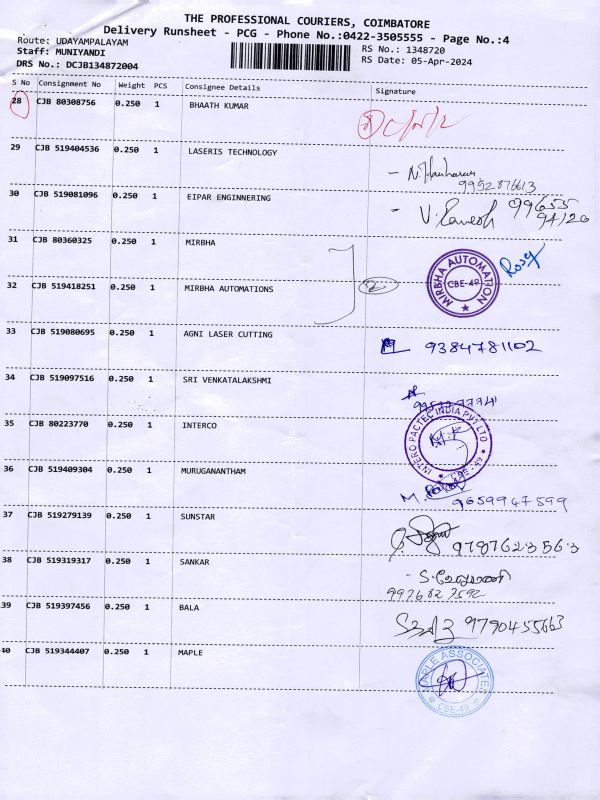 THE PROFESSIONAL COURIERS, COIMBATORE
Delivery Runsheet - PCG - Phone No.:0422-3505555 - Page No.:4
Route: UDAYAMPALAYAM
Staff: MUNIYANDI
DRS No.: DCJB134872004
RS No.: 1348720
RS Date: 05-Apr-2024
S No Consignment No Weight PCS Consignee Details Signature
28 CJB 80308756 0.250 1 BHAATH KUMAR
29 CJB 519404536 0.250 1 LASERIS TECHNOLOGY
9952876613
30 CJB 519081096 0.250 1 EIPAR ENGINNERING
V. Ramesh 99655
94120
31 CJB 80360325 0.250 1 MIRBHA
32 CJB 519418251 0.250 1 MIRBHA AUTOMATIONS
2
MIRBHA AUTOMATION
CBE-49
33 CJB 519080695 0.250 1 AGNI LASER CUTTING
9384781102
34 CJB 519097516 0.250 1 SRI VENKATALAKSHMI
35 CJB 80223770 0.250 1 INTERCO
INTERO PACTEC INDIA PVT LTD
CBE-49
36 CJB 519409304 0.250 1 MURUGANANTHAM
9659947599
37 CJB 519279139 0.250 1 SUNSTAR
9787623563
38 CJB 519319317 0.250 1 SANKAR
39 CJB 519397456 0.250 1 BALA
9790455663
40 CJB 519344407 0.250 1 MAPLE
MAPLE ASSOCIATES
CBE-49